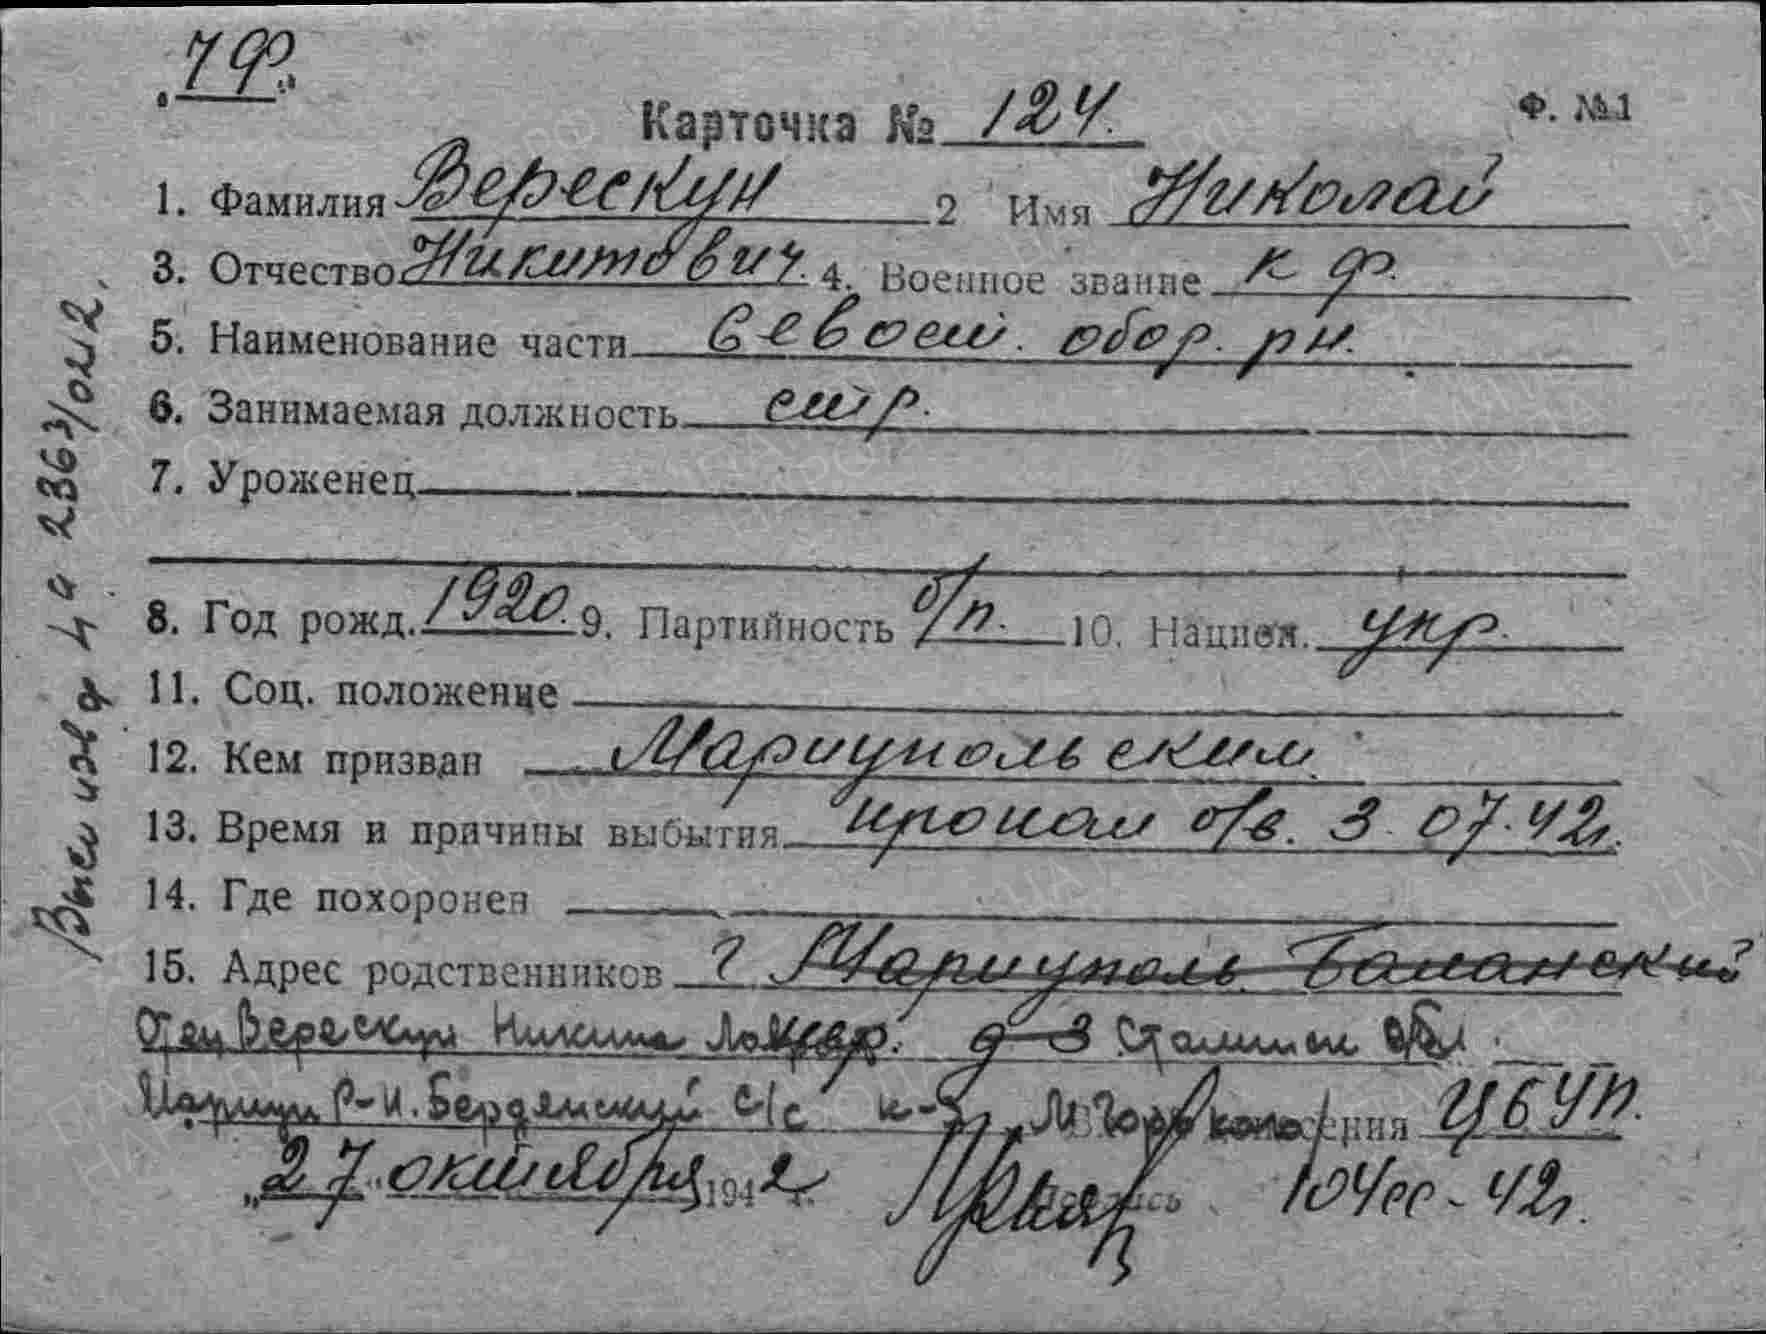 „ЧФ."
Карточка № 124.
Ф. №1
1. Фамилия Верескун 2 Имя Николай
3. Отчество Никитович. 4. Военное звание к ф.
5. Наименование части Севост. обор. рн.
6. Занимаемая должность стр.
7. Уроженец
8. Год рожд. 1920. 9. Партийность б/п. 10. Национ. укр.
11. Соц. положение
12. Кем призван Мариупольским.
13. Время и причины выбытия пропал б/в. 3.07.42г.
14. Где похоронен
15. Адрес родственников г Мариуполь. Бал
Отец Верескун Никита д-3 Сталинск обл.
Мариуп р-н. Бердянский с/с к-з М Горького ЦБУП.
„27" октября 1942 г. Подпись 104сс-42г.